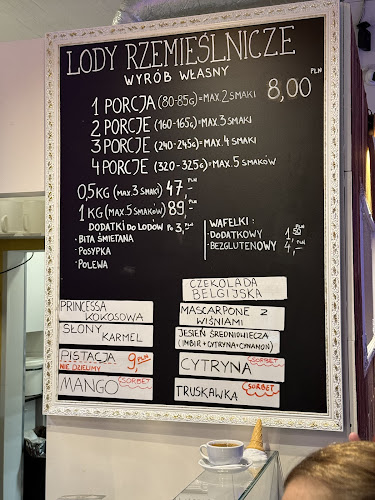 LODY RZEMIEŚLNICZE
WYRÓB WŁASNY
1 PORCJA (80-85G)=MAX. 2 SMAKI 8,00 PLN
2 PORCJE (160-165G)=MAX. 3 SMAKI
3 PORCJE (240-245G)=MAX. 4 SMAKI
4 PORCJE (320-325G)=MAX. 5 SMAKÓW
0,5 KG (MAX. 3 SMAKI) 47,- PLN
1 KG (MAX. 5 SMAKÓW) 89,- PLN
DODATKI DO LODÓW PO 3,- PLN
- BITA ŚMIETANA
- POSYPKA
- POLEWA
WAFELKI:
- DODATKOWY 1,50 PLN
- BEZGLUTENOWY 4,- PLN
PRINCESSA KOKOSOWA
SŁONY KARMEL
PISTACJA 9,- PLN
NIE DZIELIMY
MANGO SORBET
CZEKOLADA
BELGIJSKA
MASCARPONE Z
WIŚNIAMI
JESIEŃ ŚREDNIOWIECZA
(IMBIR+CYTRYNA+CYNAMON)
CYTRYNA SORBET
TRUSKAWKA SORBET